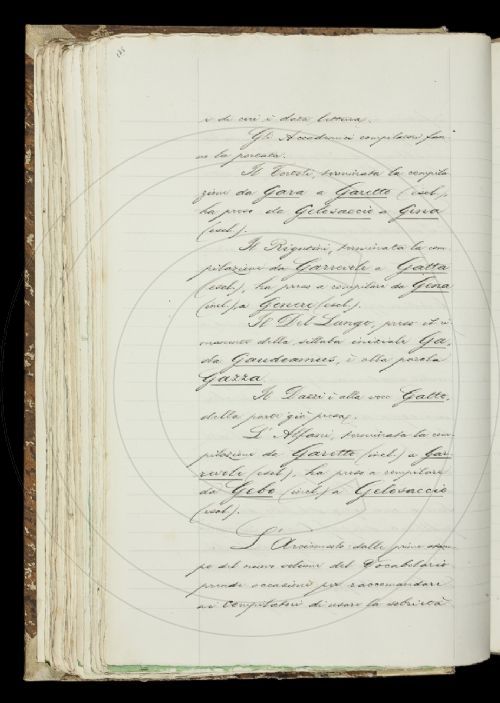 e di cui è data lettura.
Gli Accademici compilatori fan-
no la portata.
Il Tortoli, terminata la compila-
zione da Gara a Garetto (escl.),
ha preso da Gelosaccio a Gina
(escl.).
Il Rigutini, terminata la com-
pilazione da Garrevole a Gatta
(escl.), ha preso a compilare da Gena
(incl.) a Genere (escl.).
Il Del Lungo, preso il ri-
manente della sillaba iniziale Ga,
da Gaudeamus, è alla parola
Gazza.
Il Dazzi è alla voce Gatto,
della parte già presa.
L'Alfani, terminata la com-
pilazione da Garetto (incl.) a Gar-
revole (escl.), ha preso a compilare
da Gebo (incl.) a Gelosaccio
(escl.).
L'Arciconsolo dalle prime stam-
pe del nuovo volume del Vocabolario
prende occasione per raccomandare
ai Compilatori di usare la sobrietà